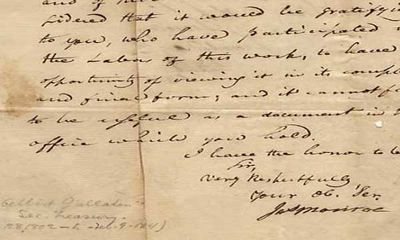 and of
sidered that it would be gratifyi
to you, who have participated i
the Labor of this work, to have
opportunity of viewing it in its compl
and final form; and it cannot fa
to be useful as a document in t
office which you hold.
I have the honor to be
Sir,
very Respectfully
Your Ob. Ser.
Jas Monroe
Albert Gallatin
Sec. Treasury.